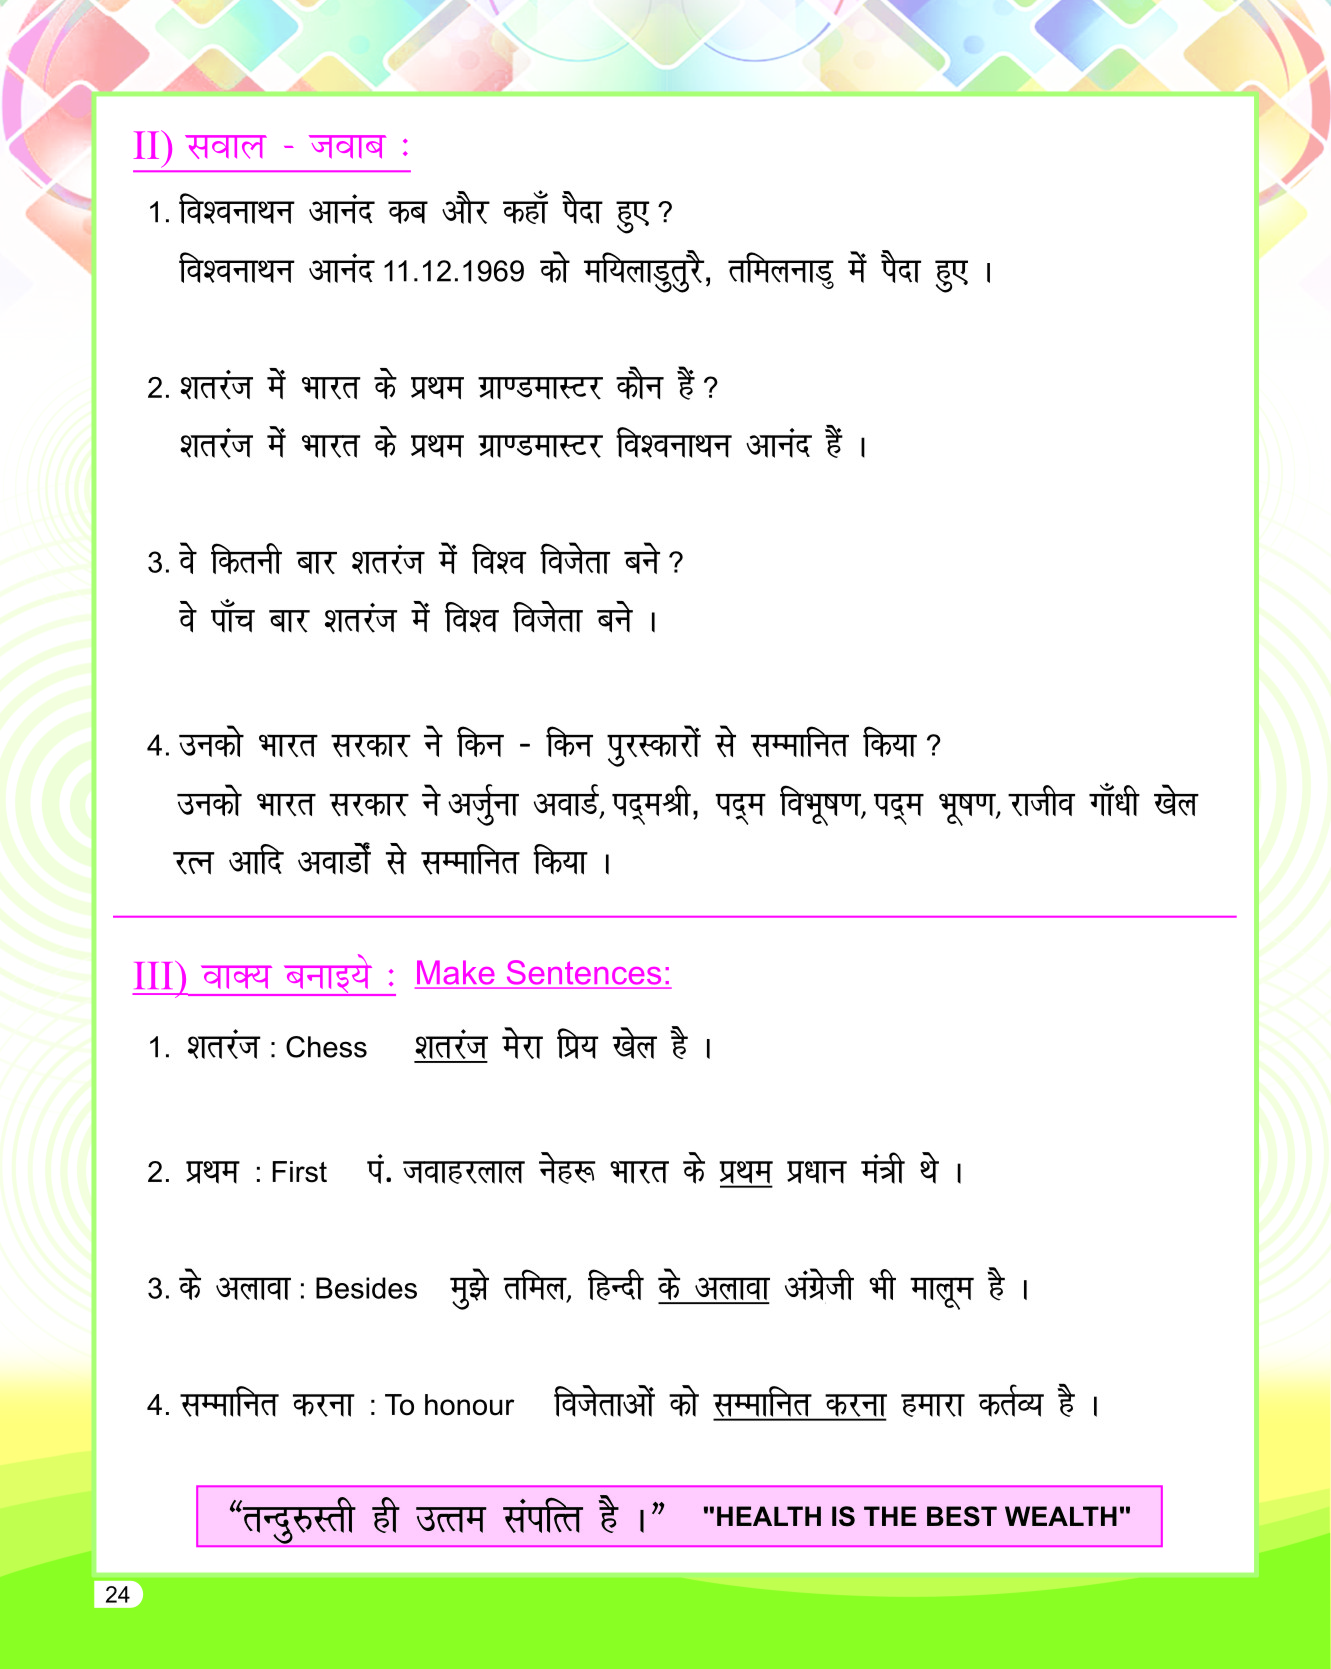 II) सवाल - जवाब :
1. विश्वनाथन आनंद कब और कहाँ पैदा हुए ?
विश्वनाथन आनंद 11.12.1969 को मयिलाडुतुरै, तमिलनाडु में पैदा हुए ।
2. शतरंज में भारत के प्रथम ग्राण्डमास्टर कौन हैं ?
शतरंज में भारत के प्रथम ग्राण्डमास्टर विश्वनाथन आनंद हैं ।
3. वे कितनी बार शतरंज में विश्व विजेता बने ?
वे पाँच बार शतरंज में विश्व विजेता बने ।
4. उनको भारत सरकार ने किन - किन पुरस्कारों से सम्मानित किया ?
उनको भारत सरकार ने अर्जुना अवार्ड, पद्मश्री, पद्म विभूषण, पद्म भूषण, राजीव गाँधी खेल
रत्न आदि अवार्डों से सम्मानित किया ।
III) वाक्य बनाइये : Make Sentences:
1. शतरंज : Chess शतरंज मेरा प्रिय खेल है ।
2. प्रथम : First पं. जवाहरलाल नेहरू भारत के प्रथम प्रधान मंत्री थे ।
3. के अलावा : Besides मुझे तमिल, हिन्दी के अलावा अंग्रेजी भी मालूम है ।
4. सम्मानित करना : To honour विजेताओं को सम्मानित करना हमारा कर्तव्य है ।
“तन्दुरुस्ती ही उत्तम संपत्ति है ।” "HEALTH IS THE BEST WEALTH"
24